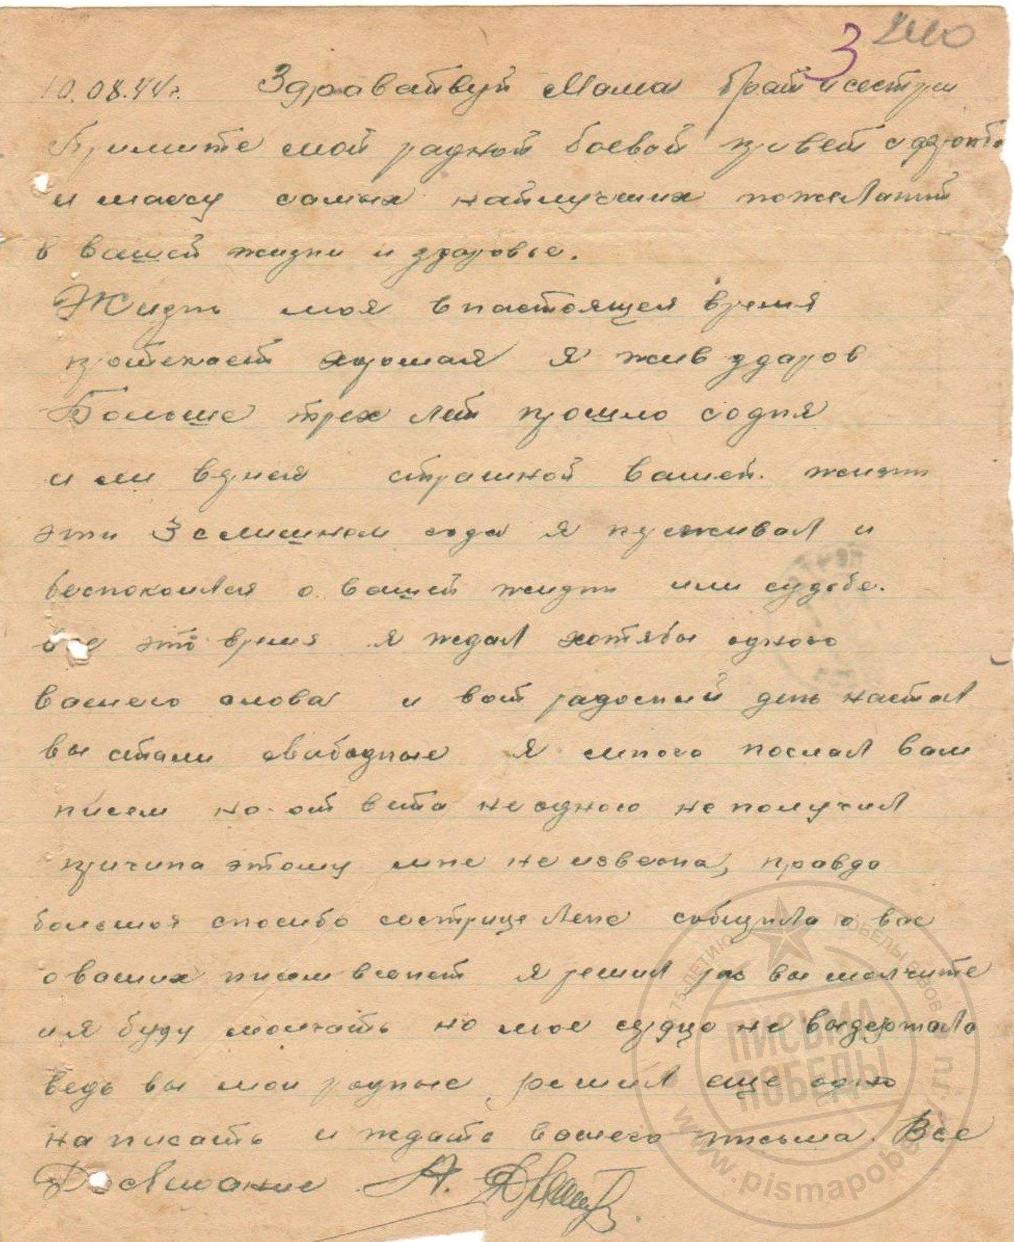 3
10.08.44г. Здраватвуй Мама брат и сестри
Примите мой радной боевой привет с фронта
и массу самых найлучших пожеланий
в вашей жизни и здаровье.
Жизнь моя в настоящея время
протекает хорошая я жив здаров
Больше трех лет прошло содня
страшной вашей. жизни
эти 3 слишном года я пуежывал и
беспокоился о вашей жизни или судьбе.
все это время я ждал хотябы одного
вашего слова и вот радосний день настал
вы стали свабодные я много послал вам
писем но ответа не одного не получил
причина этому мне не извесна, правдо
большоя спосибо сестрице Лене собщила о вас
о ваших писем всенет я решил раз вы молчите
ия буду молчать но мое сердцо не выдержало
ведь вы мои родные решил еще одно
написать и ждать вашего письма. Все
Досвидание А.
К 75-ЛЕТИЮ ПОБЕДЫ В ВОВ
ПИСЬМА
ПОБЕДЫ
www.pismapobedy.ru